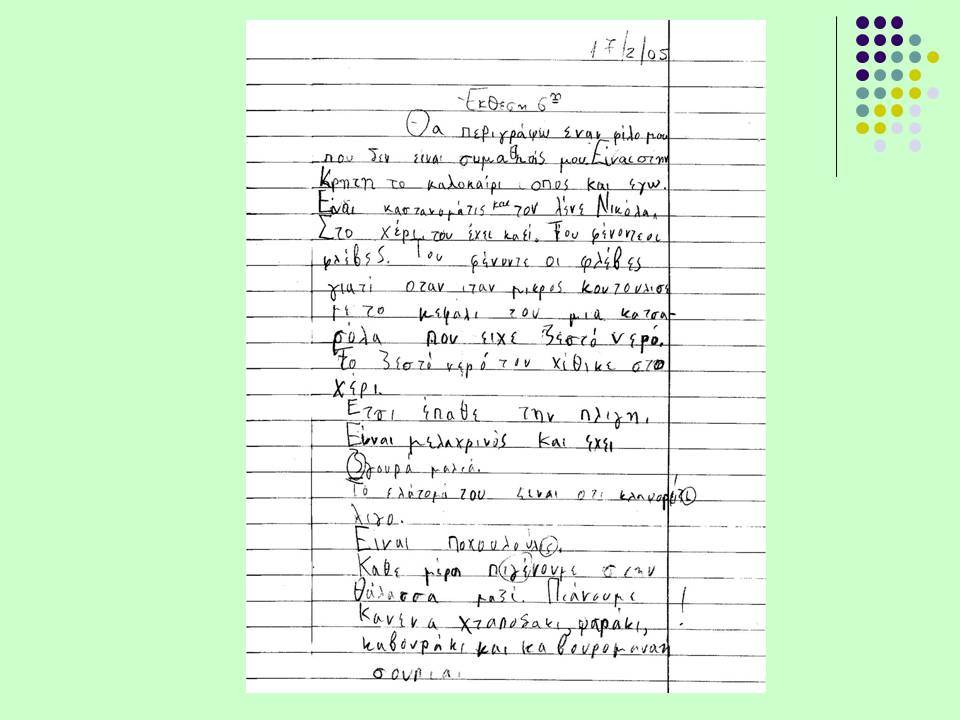 17/2/05
Έκθεση 6η
Θα περιγράψω έναν φίλο μου
που δεν είναι συμαθητής μου. Είναι στην
Κρήτη το καλοκαίρι οπος και εγω.
Είναι καστανομάτις και τον λένε Νικόλα.
Στο χέρι του έχει καεί. Του φένοντε οι
φλέβες. Του φένοντε οι φλέβες
γιατί οταν ιταν μικρος κουτουλισε
με το κεφάλι του μια κατσα-
ρόλα που ειχε ζεστό νερό.
Το ζεστό νερό του χίθικε στο
χέρι.
Ετσι έπαθε την πλιγη.
Είναι μελαχρινός και εχει
Σγουρά μαλιά.
Το ελάτομά του είναι οτι
λιγο.
Είναι
Καθε μέρα πιγένουμε στην
θάλασσα μαζί. Πιάνουμε
Κανενα χταποδακι, ψαράκι,
καβουράκι και καβουρομάνα
σουπια.
!